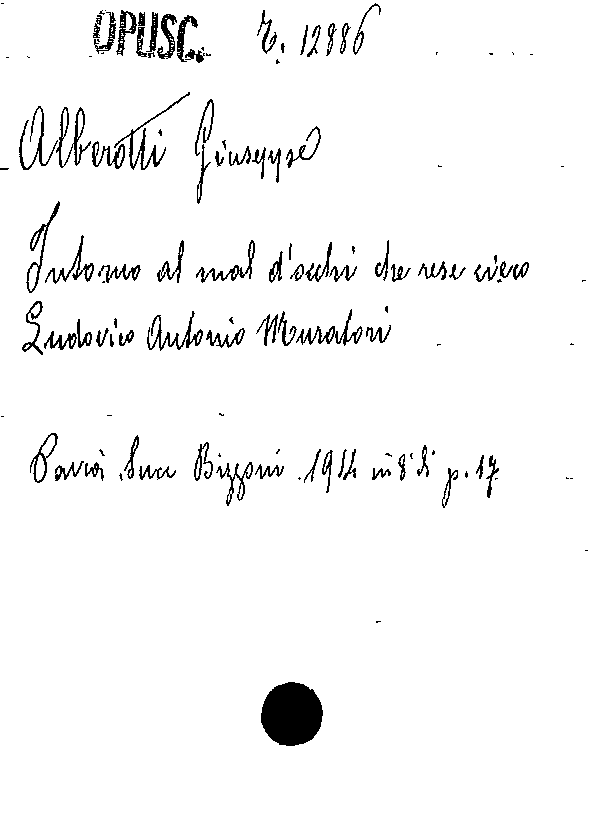 OPUSC. Z. 12886
Alberotti Giuseppe
Intorno al mal d'occhi che rese cieco
Ludovico Antonio Muratori
Pavia Succ Bizzoni 1914 in 8° di p. 17